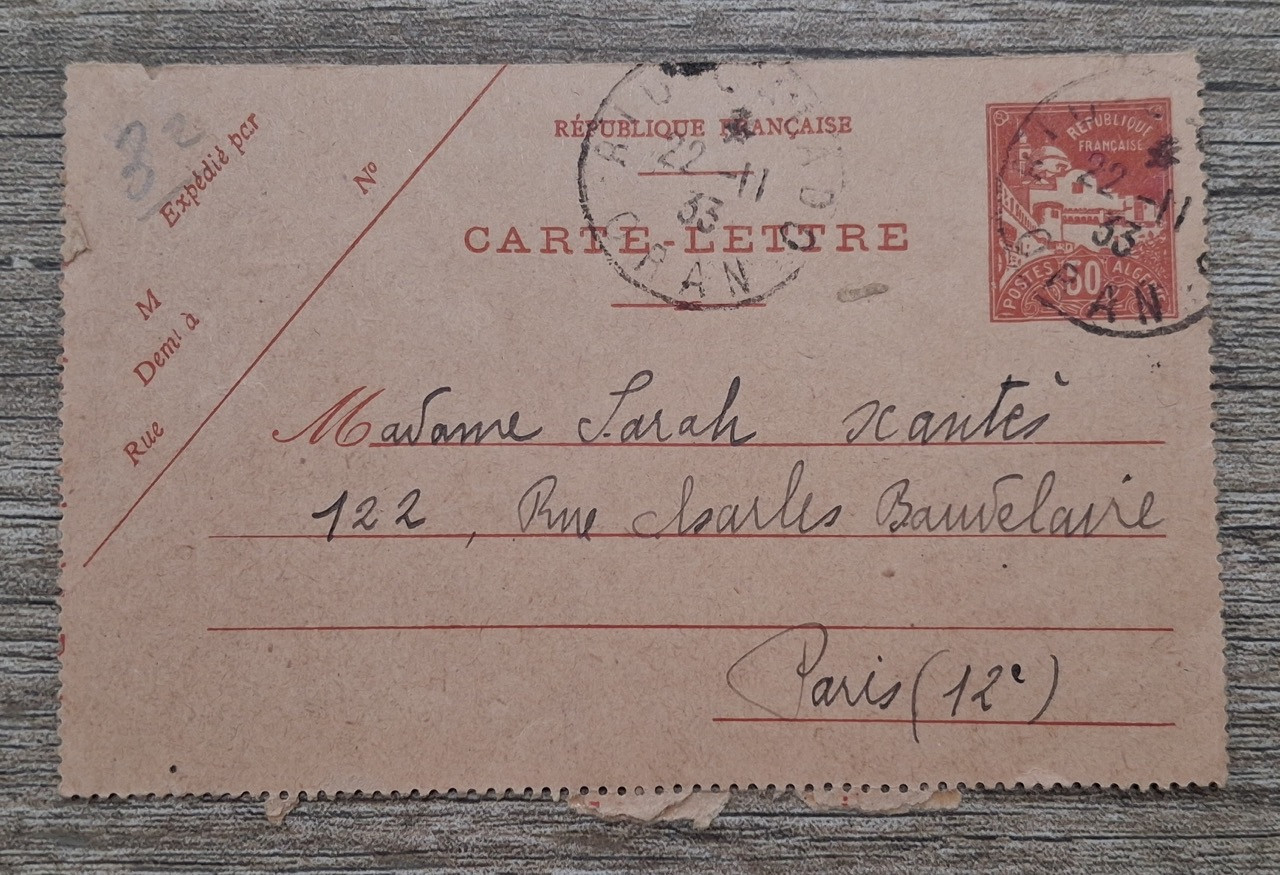 32
Expédié par
Nº
M
Demt à
Rue
RÉPUBLIQUE FRANÇAISE
CARTE-LETTRE
RIO SALADO
22-11
33
ORAN
RÉPUBLIQUE
FRANÇAISE
22-11
33
ORAN
POSTES 50 ALGÉRIE
Madame Sarah Xantès
122, Rue Charles Baudelaire
Paris (12e)